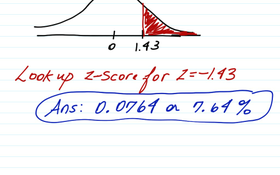 0 1.43
Look up z-score for Z=-1.43
Ans: 0.0764 or 7.64%